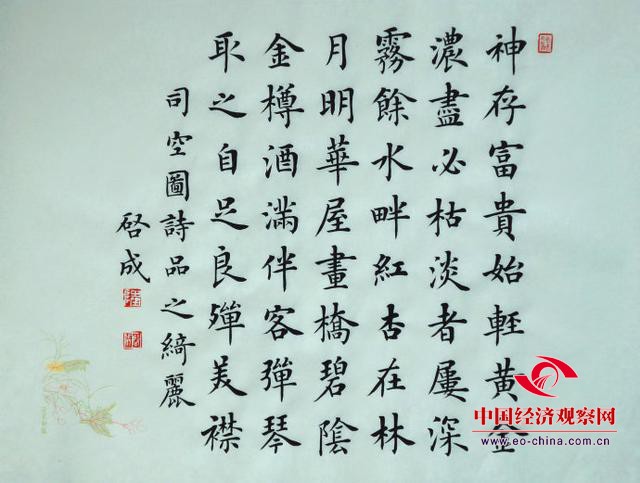 神存富貴始輕黃金
濃盡必枯淡者屢深
霧餘水畔紅杏在林
月明華屋畫橋碧陰
金樽酒滿伴客彈琴
取之自足良殫美襟
司空圖詩品之綺麗
啓成
中国经济观察网
www.eo-china.com.cn